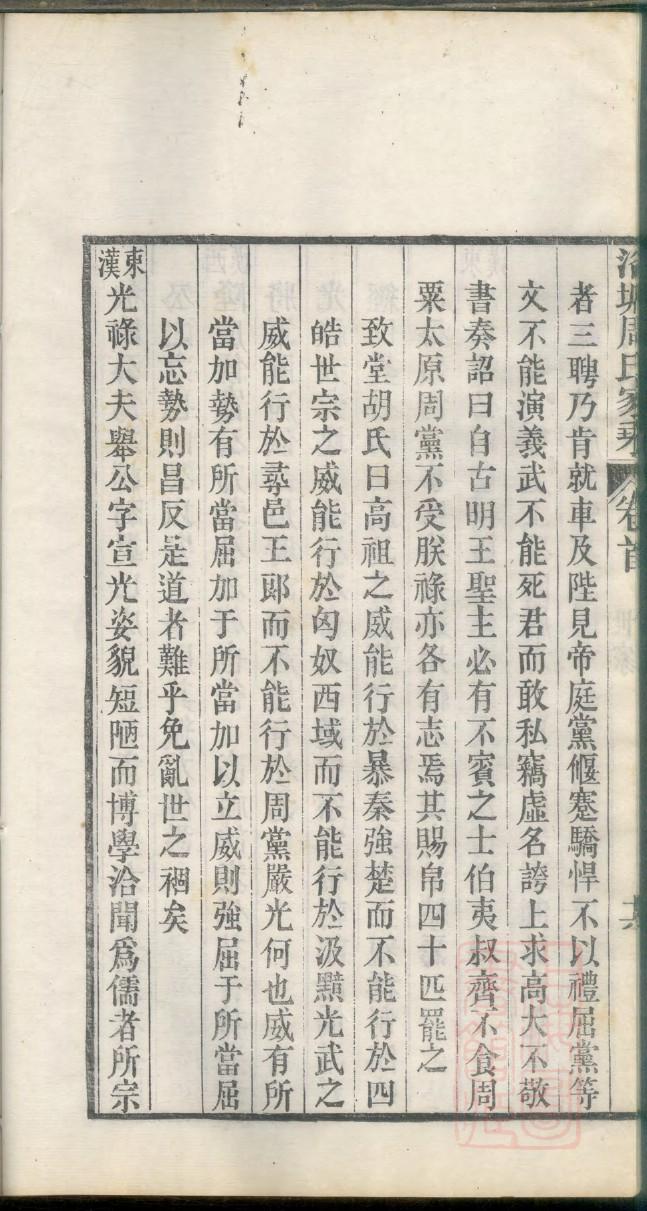 塘周氏家乘 卷首
者三聘乃肯就車及陛見帝庭黨偃蹇驕悍不以禮屈黨等
文不能演義武不能死君而敢私竊虛名誇上求高大不敬
書奏詔曰自古明王聖主必有不賓之士伯夷叔齊不食周
粟太原周黨不受朕祿亦各有志焉其賜帛四十匹罷之
致堂胡氏曰高祖之威能行於暴秦強楚而不能行於四
皓世宗之威能行於匈奴西域而不能行於汲黯光武之
威能行於尋邑王郎而不能行於周黨嚴光何也威有所
當加勢有所當屈加于所當加以立威則強屈于所當屈
以忘勢則昌反是道者難乎免亂世之禍矣
東漢光祿大夫舉公字宣光姿貌短陋而博學洽聞爲儒者所宗